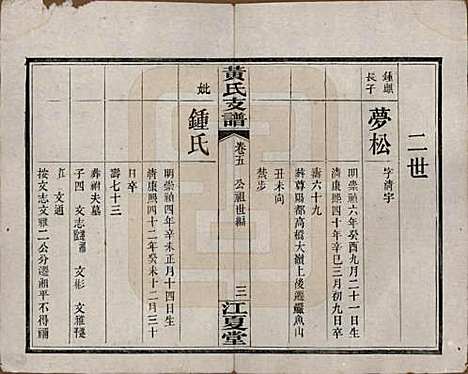 二世
鍾麒長子
夢松
字清宇
明崇禎六年癸酉九月二十一日生
清康熙四十年辛巳三月初九日卒
壽六十九
葬尊陽都高橋大嶺上後遷鱺魚山
丑未向
禁步
黃氏支譜
卷五
公祖世編
三
江夏堂
妣
鍾氏
明崇禎四年辛未正月十四日生
清康熙四十二年癸未十二月三十
日卒
壽七十三
葬祔夫墓
子四 文志 文彬 文雅
文通
按文志文雅二公分遷湘平不得瀰